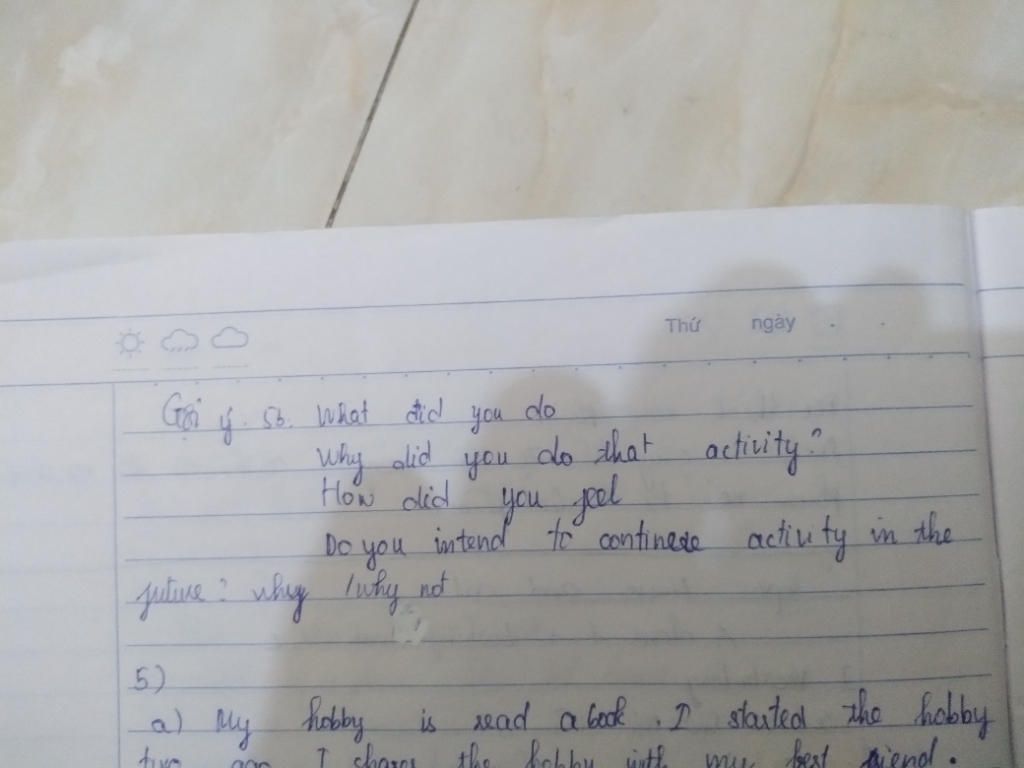 Thứ ngày
Gợi ý. 5b. What did you do
Why did you do that activity?
How did you feel
Do you intend to continese activity in the
future? why /why not
5)
a) My hobby is read a book. I started the hobby
ago. I the hobby with my best friend.